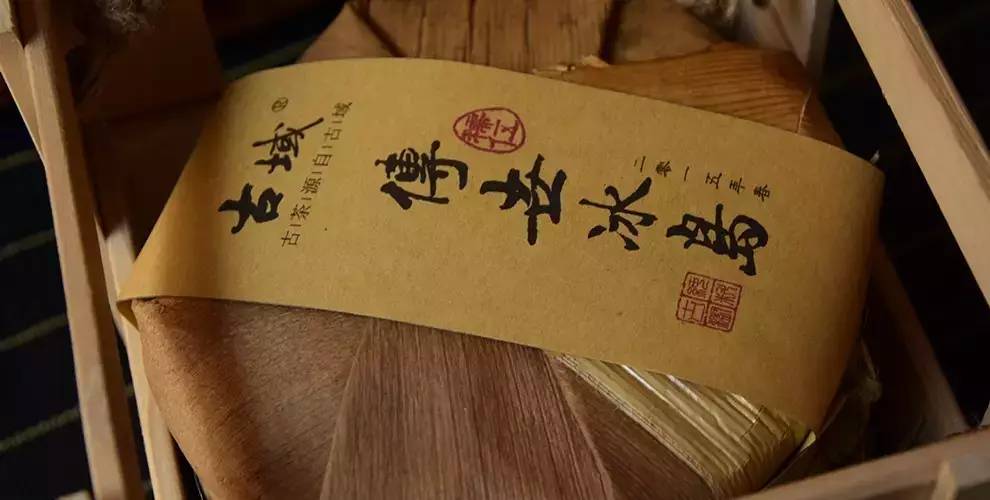 古域®
古|茶|源|自|古|域
傳世冰島
二零一五年春